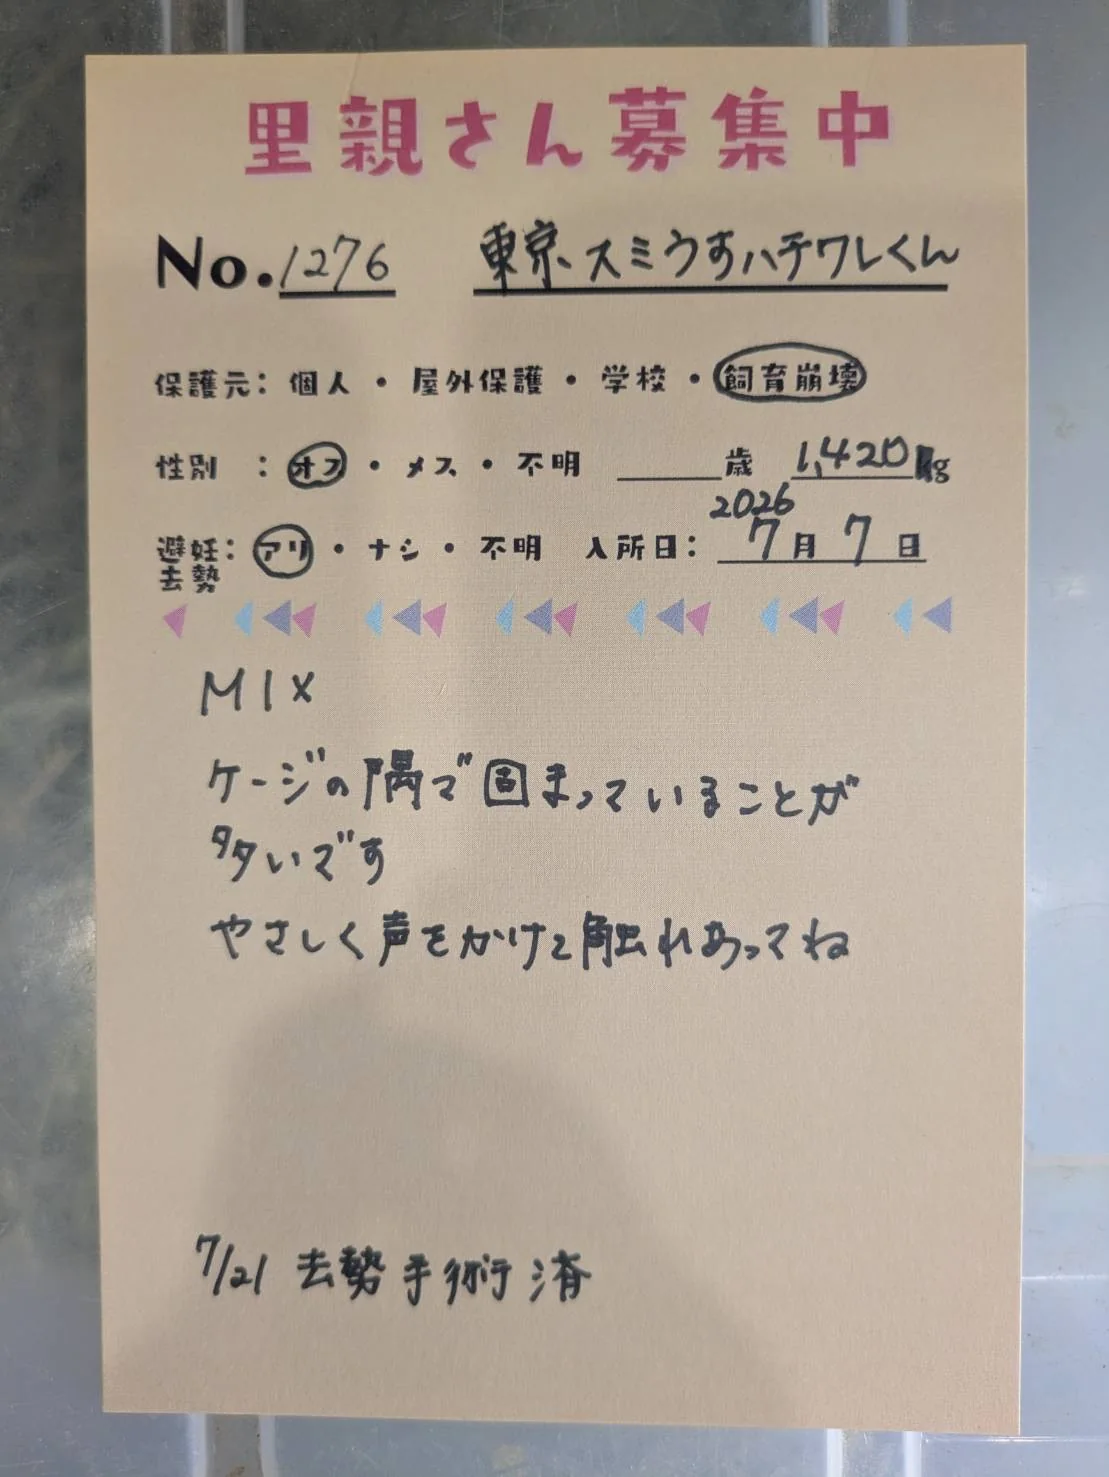 里親さん募集中
No.1276 東京スミうすハチワレくん
保護元: 個人・屋外保護・学校・飼育崩壊
性別 : オス・メス・不明 歳 1,420g
2026
避妊去勢: アリ・ナシ・不明 入所日: 7月7日
MIX
ケージの隅で固まっていることが
多いです
やさしく声をかけて触れあってね
7/21 去勢手術済